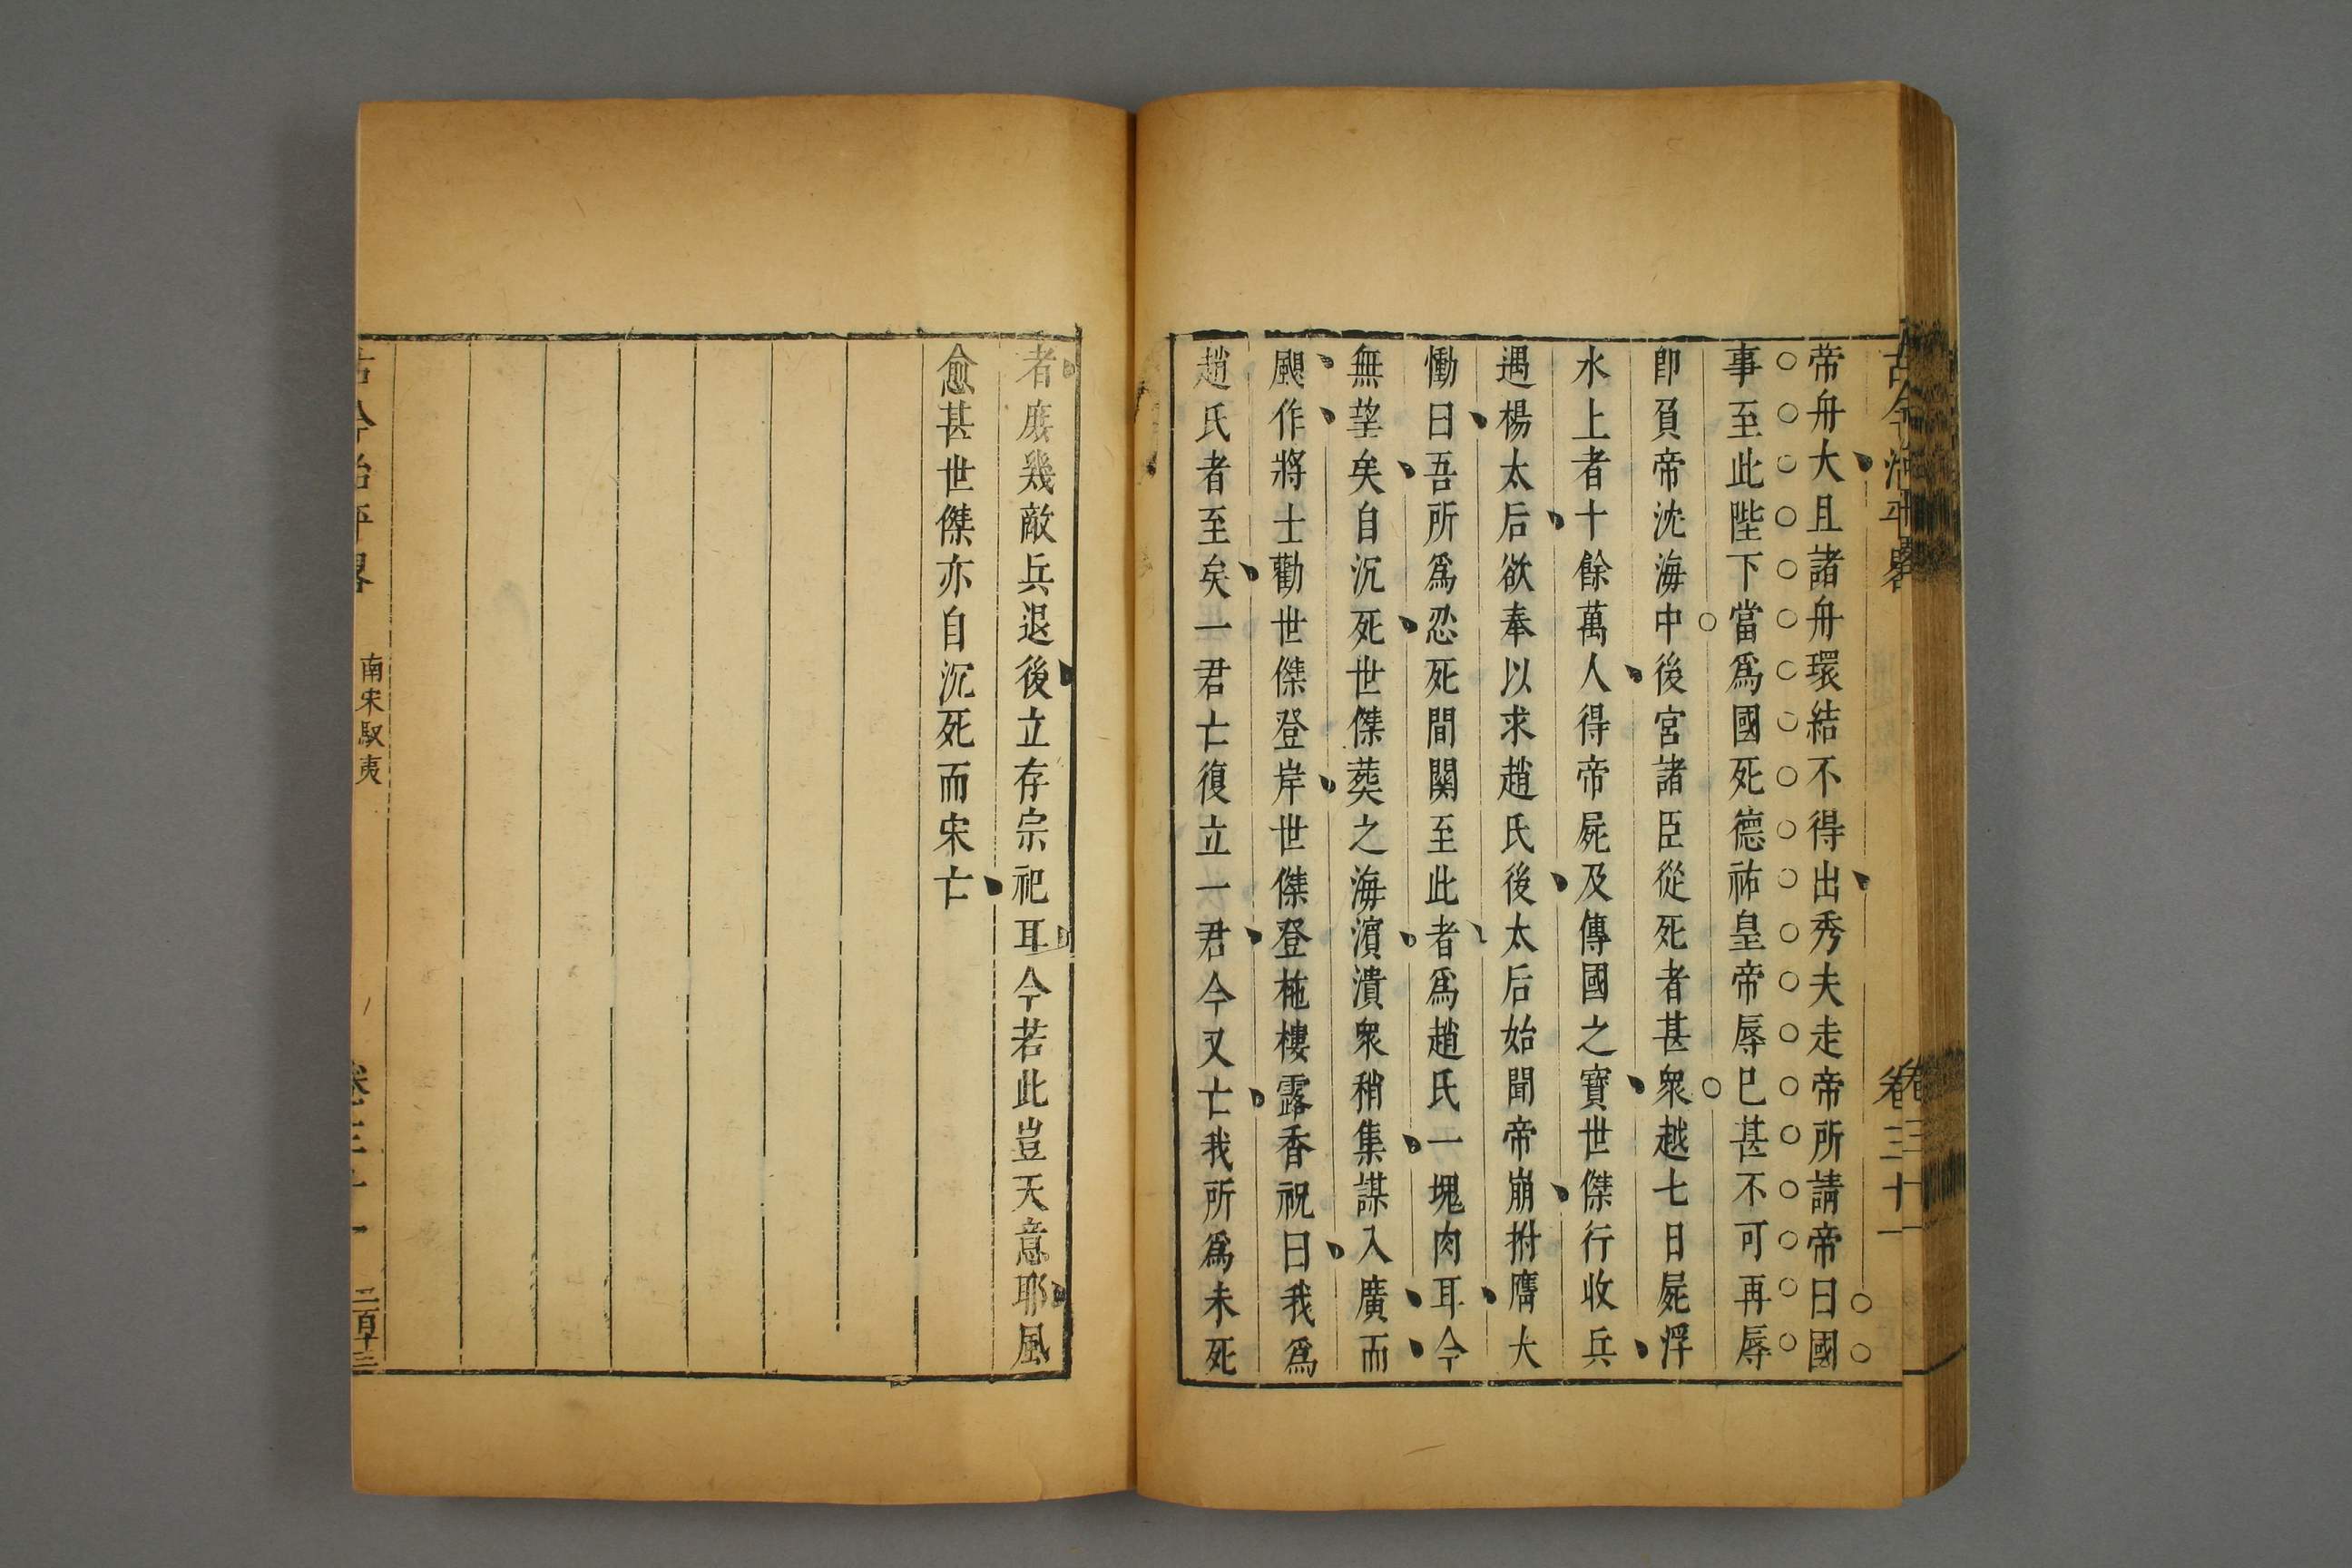 古今治平畧 卷三十一
帝舟大且諸舟環結不得出秀夫走帝所請帝曰國
事至此陛下當爲國死德祐皇帝辱巳甚不可再辱
卽負帝沈海中後宮諸臣從死者甚衆越七日屍浮
水上者十餘萬人得帝屍及傳國之寶世傑行收兵
遇楊太后欲奉以求趙氏後太后始聞帝崩拊膺大
慟曰吾所爲忍死間關至此者爲趙氏一塊肉耳今
無望矣自沉死世傑葬之海濵潰衆稍集謀入廣而
颶作將士勸世傑登岸世傑登柂樓露香祝曰我爲
趙氏者至矣一君亡復立一君今又亡我所爲未死
者庶幾敵兵退後立存宗祀耳今若此豈天意耶風
愈甚世傑亦自沉死而宋亡
古今治平畧 南宋馭夷 卷三十一 二百十三